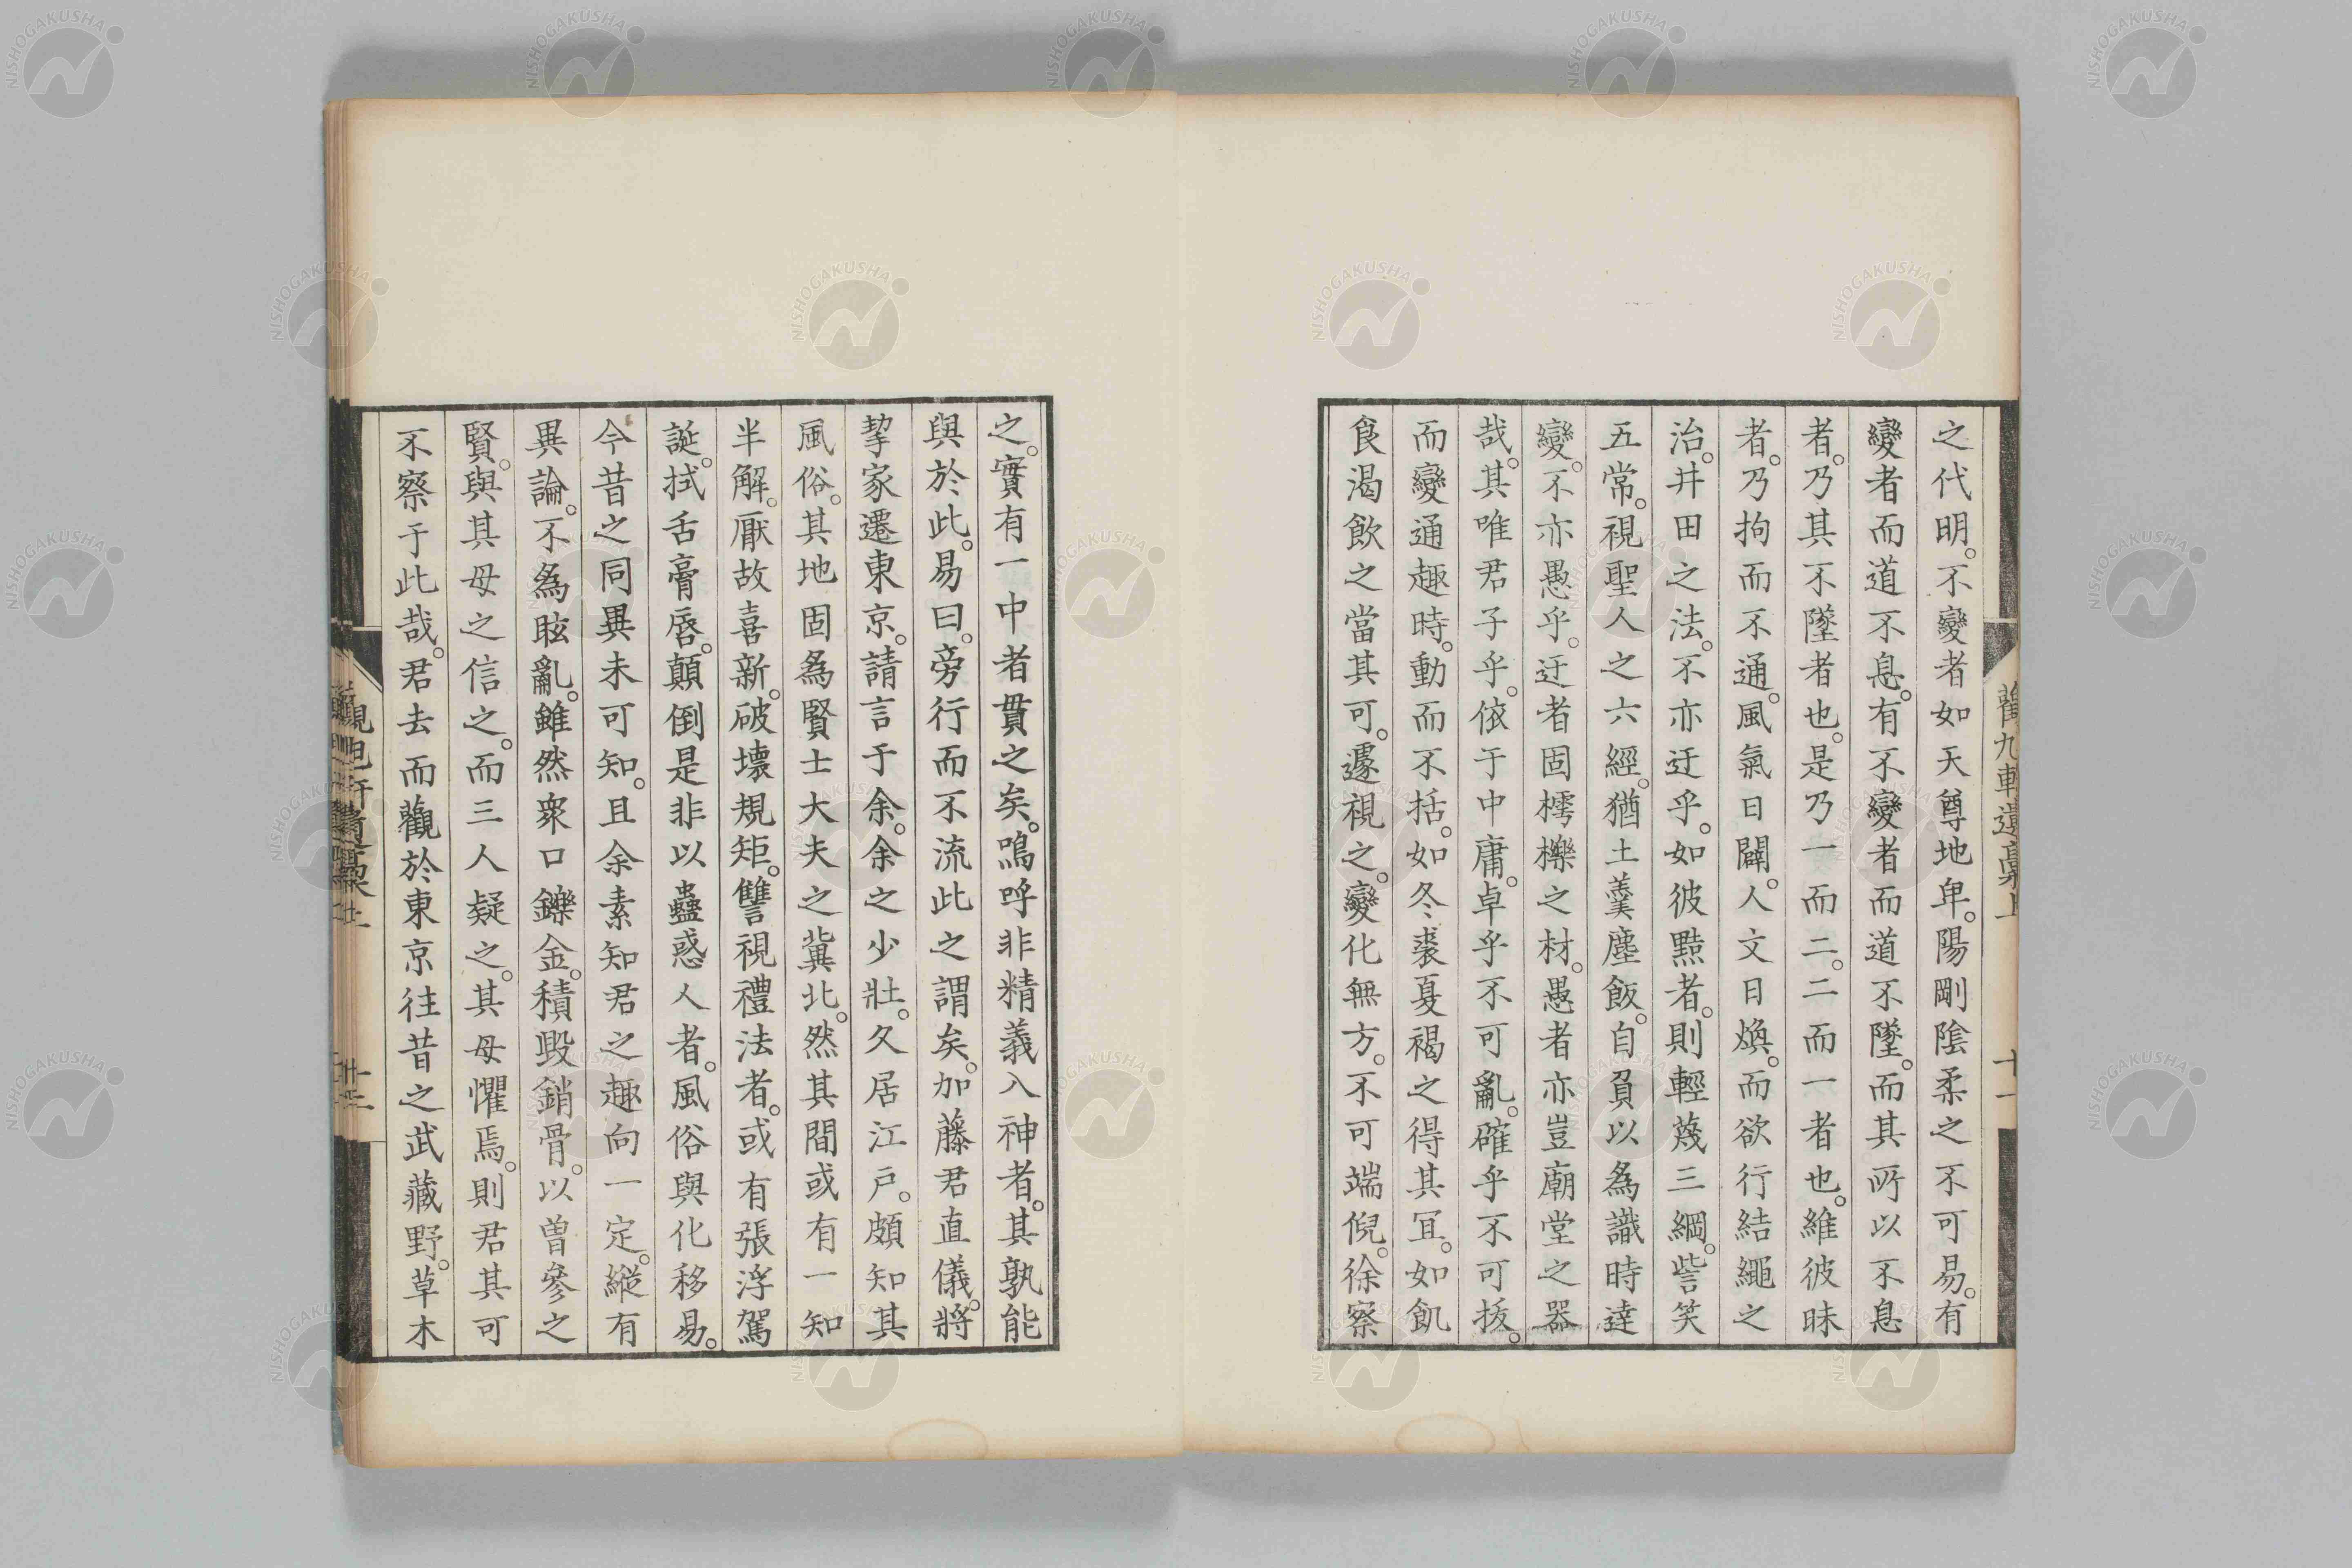 之代明。不變者如天尊地卑。陽剛陰柔之不可易。有
變者而道不息。有不變者而道不墜。而其所以不息
者。乃其不墜者也。是乃一而二。二而一者也。維彼昧
者。乃拘而不通。風氣日闢。人文日煥。而欲行結繩之
治。井田之法。不亦迂乎。如彼黠者。則輕蔑三綱。訾笑
五常。視聖人之六經。猶土羹塵飯。自負以為識時達
變。不亦愚乎。迂者固樗櫟之材。愚者亦豈廟堂之器
哉。其唯君子乎。依于中庸。卓乎不可亂。確乎不可拔。
而變通趣時。動而不括。如冬裘夏褐之得其宜。如飢
食渴飲之當其可。遽視之。變化無方。不可端倪。徐察
觀九軒遺稾上
十一
之。實有一中者貫之矣。嗚呼非精義入神者。其孰能
與於此。易曰。旁行而不流此之謂矣。加藤君直儀。將
挈家遷東京。請言于余。余之少壯。久居江戶。頗知其
風俗。其地固為賢士大夫之冀北。然其間或有一知
半解。厭故喜新。破壞規矩。讐視禮法者。或有張浮駕
誕。拭舌膏唇。顛倒是非以蠱惑人者。風俗與化移易。
今昔之同異未可知。且余素知君之趣向一定。縱有
異論。不為眩亂。雖然衆口鑠金。積毀銷骨。以曾參之
賢。與其母之信之。而三人疑之。其母懼焉。則君其可
不察于此哉。君去而觀於東京往昔之武藏野。草木
NISHOGAKUSHA